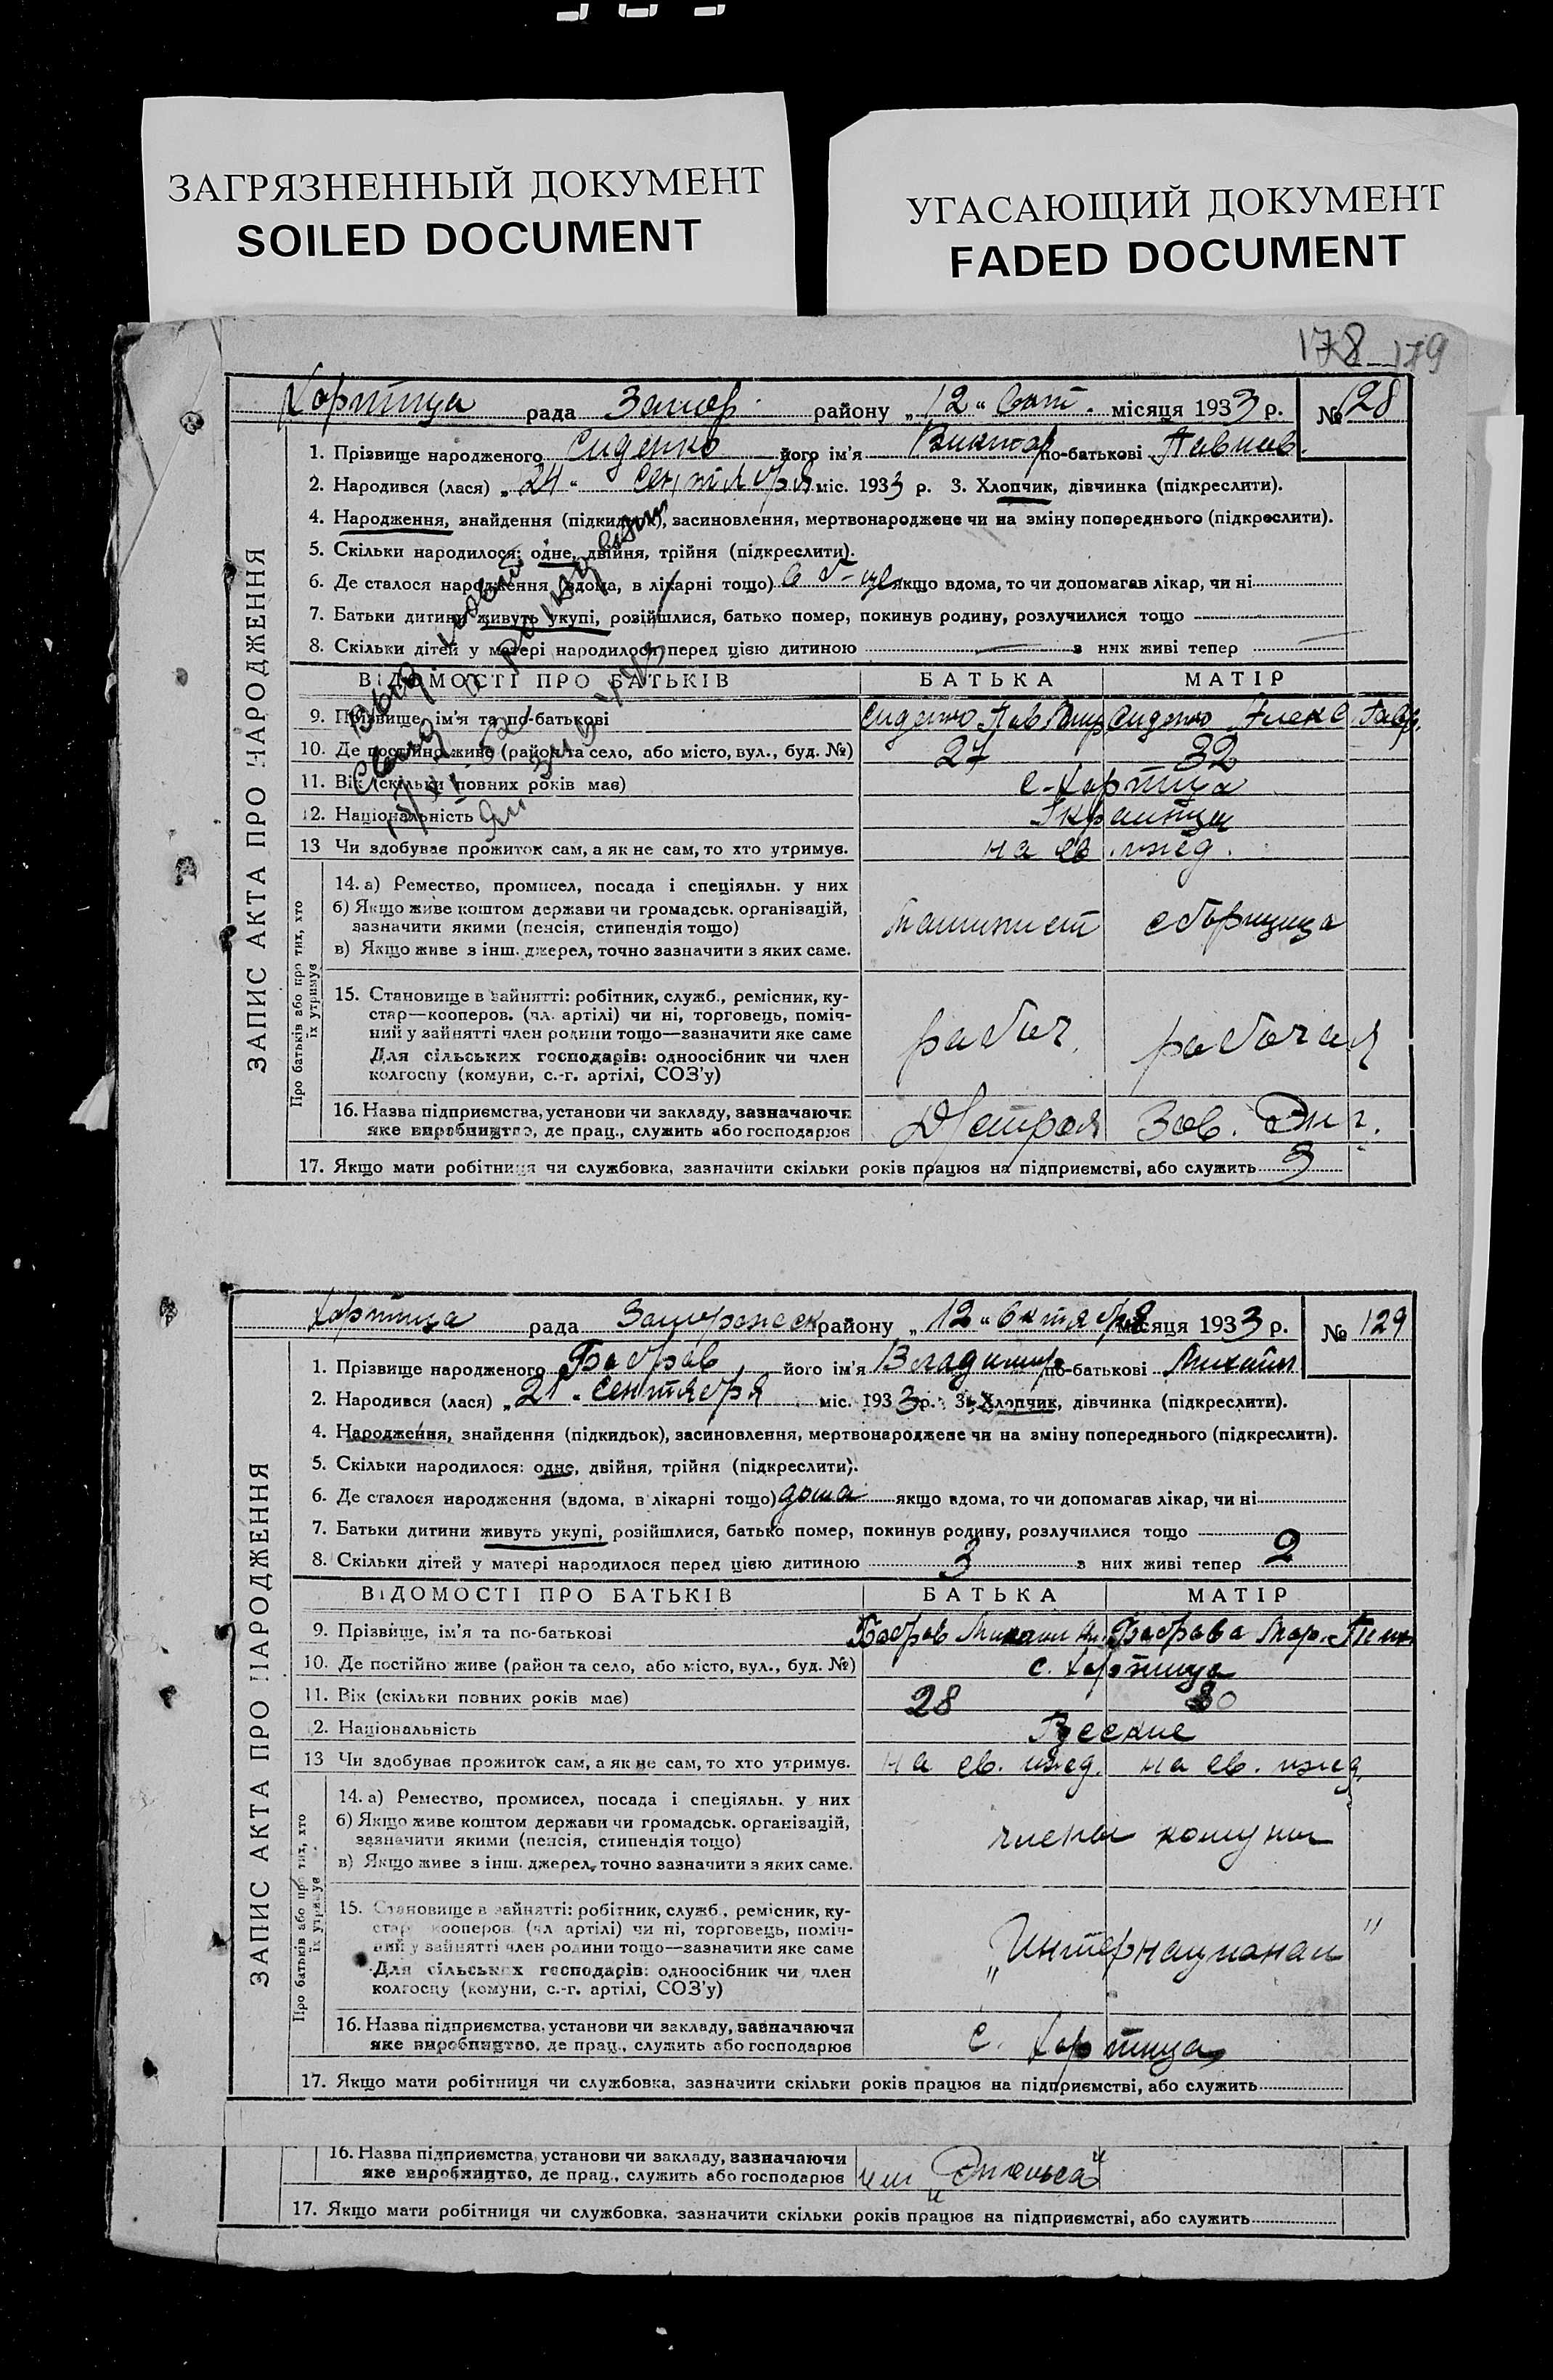 ЗАГРЯЗНЕННЫЙ ДОКУМЕНТ
SOILED DOCUMENT
УГАСАЮЩИЙ ДОКУМЕНТ
FADED DOCUMENT
178 179
Хортица рада Запор. району „12“ Окт. місяця 1933 р. № 128
ЗАПИС АКТА ПРО НАРОДЖЕННЯ
1. Прізвище народженого Сиденко його ім'я Виктор по-батькові Павлов.
2. Народився (лася) „24“ Сентября міс. 1933 р. 3. Хлопчик, дівчинка (підкреслити).
4. Народження, знайдення (підкидьок), засиновлення, мертвонароджене чи на зміну попереднього (підкреслити).
5. Скільки народилося: одне, двійня, трійня (підкреслити).
6. Де сталося народження (вдома, в лікарні тощо) в б-це якщо вдома, то чи допомагав лікар, чи ні
7. Батьки дитини живуть укупі, розійшлися, батько помер, покинув родину, розлучилися тощо
8. Скільки дітей у матері народилося перед цією дитиною — з них живі тепер —
ВІДОМОСТІ ПРО БАТЬКІВ БАТЬКА МАТІР
9. Прізвище, ім'я та по-батькові Сиденко Пав Сиденко Алекс
10. Де постійно живе (район та село, або місто, вул., буд. №) 27 32
11. Вік (скільки повних років має) с. Хортица
12. Національність Украинцы
13 Чи здобуває прожиток сам, а як не сам, то хто утримує. на св. ижд.
Про батьків або про тих, хто їх утримує
14. а) Ремество, промисел, посада і спеціяльн. у них
б) Якщо живе коштом держави чи громадськ. організацій,
зазначити якими (пенсія, стипендія тощо)
в) Якщо живе з інш. джерел, точно зазначити з яких саме.
Машинист сборщица
15. Становище в зайнятті: робітник, служб., ремісник, ку-
стар—кооперов. (чл. артілі) чи ні, торговець, поміч-
ний у зайнятті член родини тощо—зазначити яке саме
Для сільських господарів: одноосібник чи член
колгоспу (комуни, с.-г. артілі, СОЗ'у)
рабоч. рабочая
16. Назва підприємства, установи чи закладу, зазначаючи
яке виробництво, де прац., служить або господарює
Дстрой Зав. Энг.
17. Якщо мати робітниця чи службовка, зазначити скільки років працює на підприємстві, або служить 3
Хортица рада Запорожск району „12“ Октября місяця 1933 р. № 129
ЗАПИС АКТА ПРО НАРОДЖЕННЯ
1. Прізвище народженого Бобров його ім'я Владимир по-батькові Михайл
2. Народився (лася) „21“ Сентября міс. 1933 р. 3. Хлопчик, дівчинка (підкреслити).
4. Народження, знайдення (підкидьок), засиновлення, мертвонароджене чи на зміну попереднього (підкреслити).
5. Скільки народилося: одне, двійня, трійня (підкреслити).
6. Де сталося народження (вдома, в лікарні тощо) дома якщо вдома, то чи допомагав лікар, чи ні
7. Батьки дитини живуть укупі, розійшлися, батько помер, покинув родину, розлучилися тощо
8. Скільки дітей у матері народилося перед цією дитиною 3 з них живі тепер 2
ВІДОМОСТІ ПРО БАТЬКІВ БАТЬКА МАТІР
9. Прізвище, ім'я та по-батькові Бобров Михаил Боброва Мар.
10. Де постійно живе (район та село, або місто, вул., буд. №) с. Хортица
11. Вік (скільки повних років має) 28 30
12. Національність Русские
13 Чи здобуває прожиток сам, а як не сам, то хто утримує. на св. ижд. на св. ижд.
Про батьків або про тих, хто їх утримує
14. а) Ремество, промисел, посада і спеціяльн. у них
б) Якщо живе коштом держави чи громадськ. організацій,
зазначити якими (пенсія, стипендія тощо)
в) Якщо живе з інш. джерел, точно зазначити з яких саме.
члены комуны
15. Становище в зайнятті: робітник, служб., ремісник, ку-
стар—кооперов. (чл. артілі) чи ні, торговець, поміч-
ний у зайнятті член родини тощо—зазначити яке саме
Для сільських господарів: одноосібник чи член
колгоспу (комуни, с.-г. артілі, СОЗ'у)
„Интернационал"
16. Назва підприємства, установи чи закладу, зазначаючи
яке виробництво, де прац., служить або господарює
с. Хортица
17. Якщо мати робітниця чи службовка, зазначити скільки років працює на підприємстві, або служить
16. Назва підприємства, установи чи закладу, зазначаючи
яке виробництво, де прац., служить або господарює
им „Энгельса"
17. Якщо мати робітниця чи службовка, зазначити скільки років працює на підприємстві, або служить